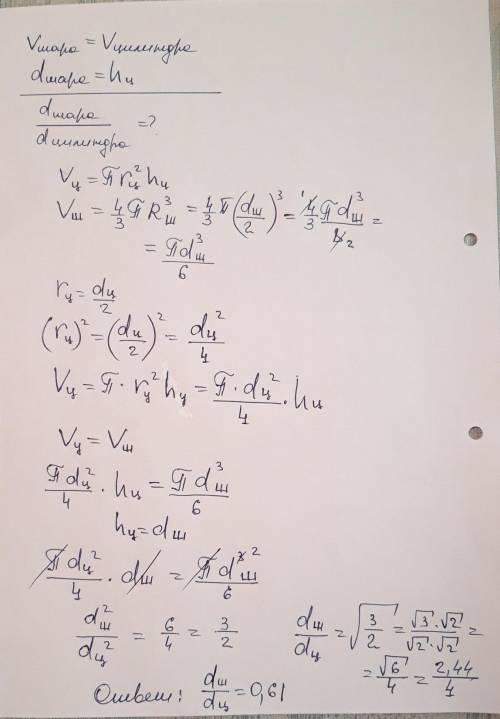 Vшара = Vцилиндра
dшара = hц
dшара / dцилиндра = ?
Vц = π rц² hц
Vш = 4/3 π Rш³ = 4/3 π (dш/2)³ = 4/3 π dш³ / 8 2 =
= π dш³ / 6
rц = dц / 2
(rц)² = (dц/2)² = dц² / 4
Vц = π · rц² hц = π · dц² / 4 · hц
Vц = Vш
π dц² / 4 · hц = π dш³ / 6
hц = dш
π dц² / 4 · dш = π dш³ ² / 6
dш² / dц² = 6/4 = 3/2
dш / dц = √(3/2) = √3 · √2 / √2 · √2 =
= √6 / 4 = 2,44 / 4
Ответ: dш / dц = 0,61